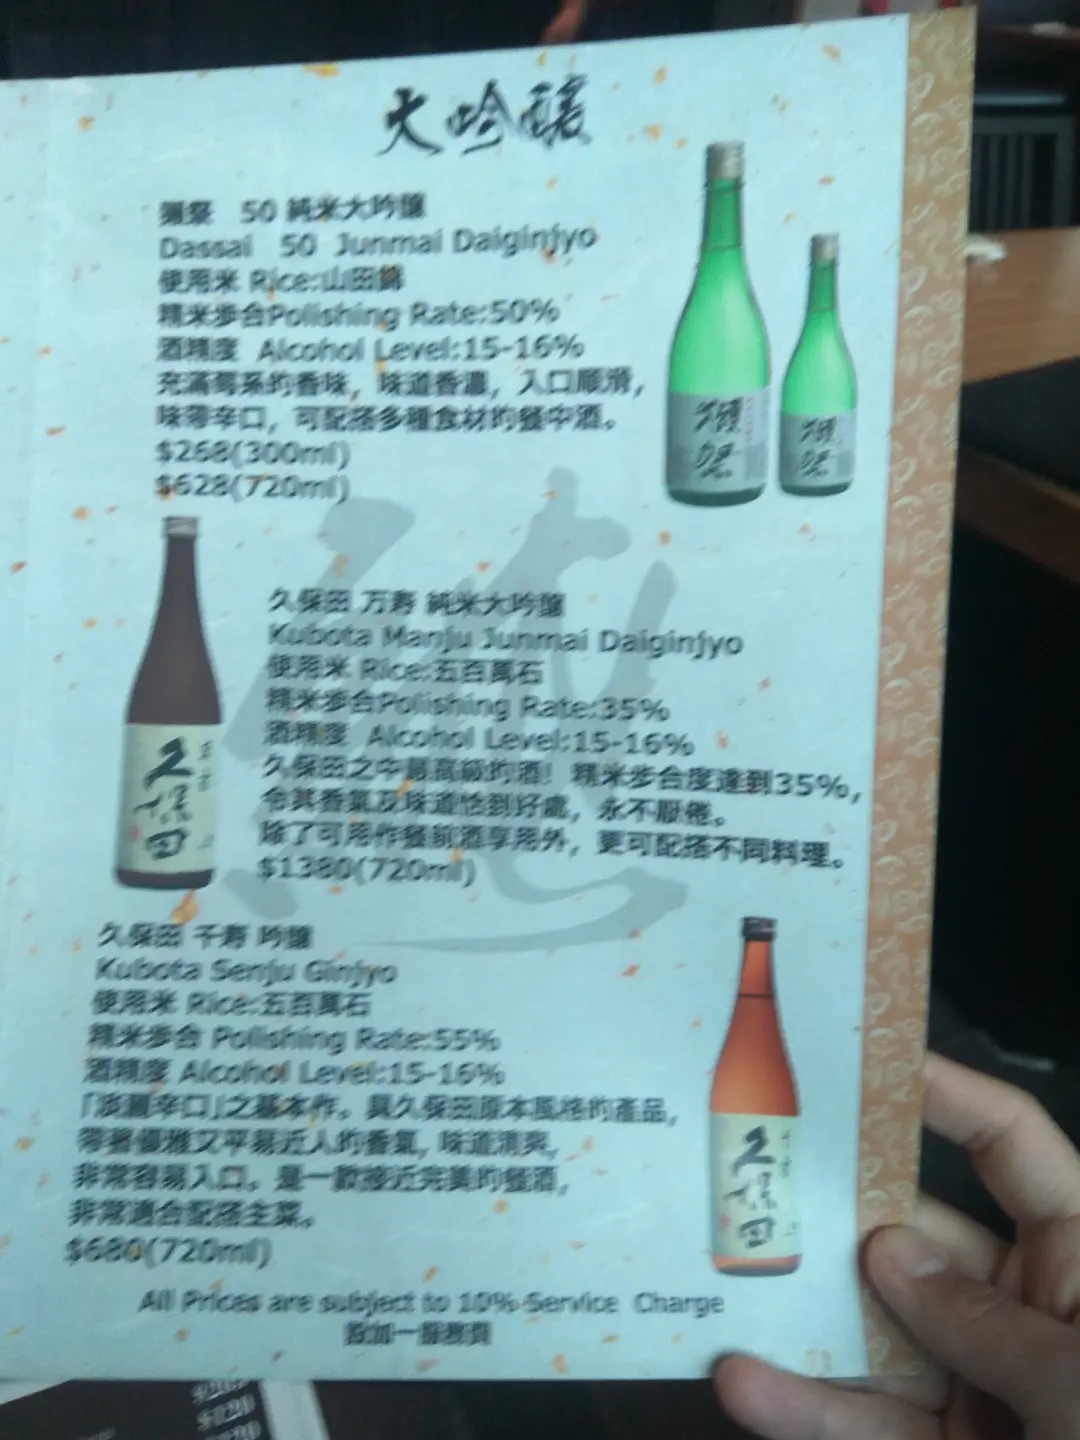 大吟釀
獺祭 50 純米大吟釀
Dassai 50 Junmai Daiginjyo
使用米 Rice:山田錦
精米步合Polishing Rate:50%
酒精度 Alcohol Level:15-16%
充滿莓系的香味，味道香濃，入口順滑，
味帶辛口，可配搭多種食材的餐中酒。
$268(300ml)
$628(720ml)
獺祭
獺祭
久保田 万寿 純米大吟釀
Kubota Manju Junmai Daiginjyo
使用米 Rice:五百萬石
精米步合Polishing Rate:35%
酒精度 Alcohol Level:15-16%
久保田之中最高級的酒！精米步合度達到35%，
令其香氣及味道恰到好處，永不厭倦。
除了可用作餐前酒享用外，更可配搭不同料理。
$1380(720ml)
久保田
久保田 千寿 吟釀
Kubota Senju Ginjyo
使用米 Rice:五百萬石
精米步合 Polishing Rate:55%
酒精度 Alcohol Level:15-16%
「淡麗辛口」之基本作。具久保田原本風格的產品，
帶著優雅又平易近人的香氣，味道清爽，
非常容易入口。是一款接近完美的餐酒，
非常適合配搭主菜。
$680(720ml)
久保田
All Prices are subject to 10% Service Charge
設加一服務費